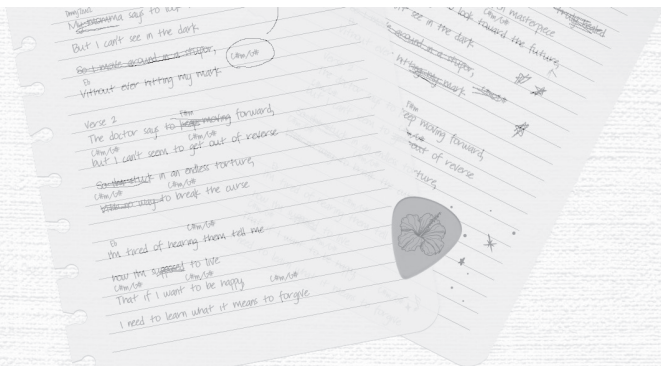 My momma says to look
But I can't see in the dark
So I move around in a stupor,
C#m/G#
Without ever hitting my mark
Verse 2
The doctor says to keep moving forward,
C#m/G# C#m/G#
but I can't seem to get out of reverse
stuck in an endless torture,
C#m/G# C#m/G#
way to break the curse
C#m/G#
I'm tired of hearing them tell me
how I'm supposed to live
C#m/G# C#m/G# C#m/G#
That if I want to be happy
I need to learn what it means to forgive
masterpiece
truly created
look toward the future,
see in the dark
around in a stupor,
hitting my mark
keep moving forward,
out of reverse
ture,